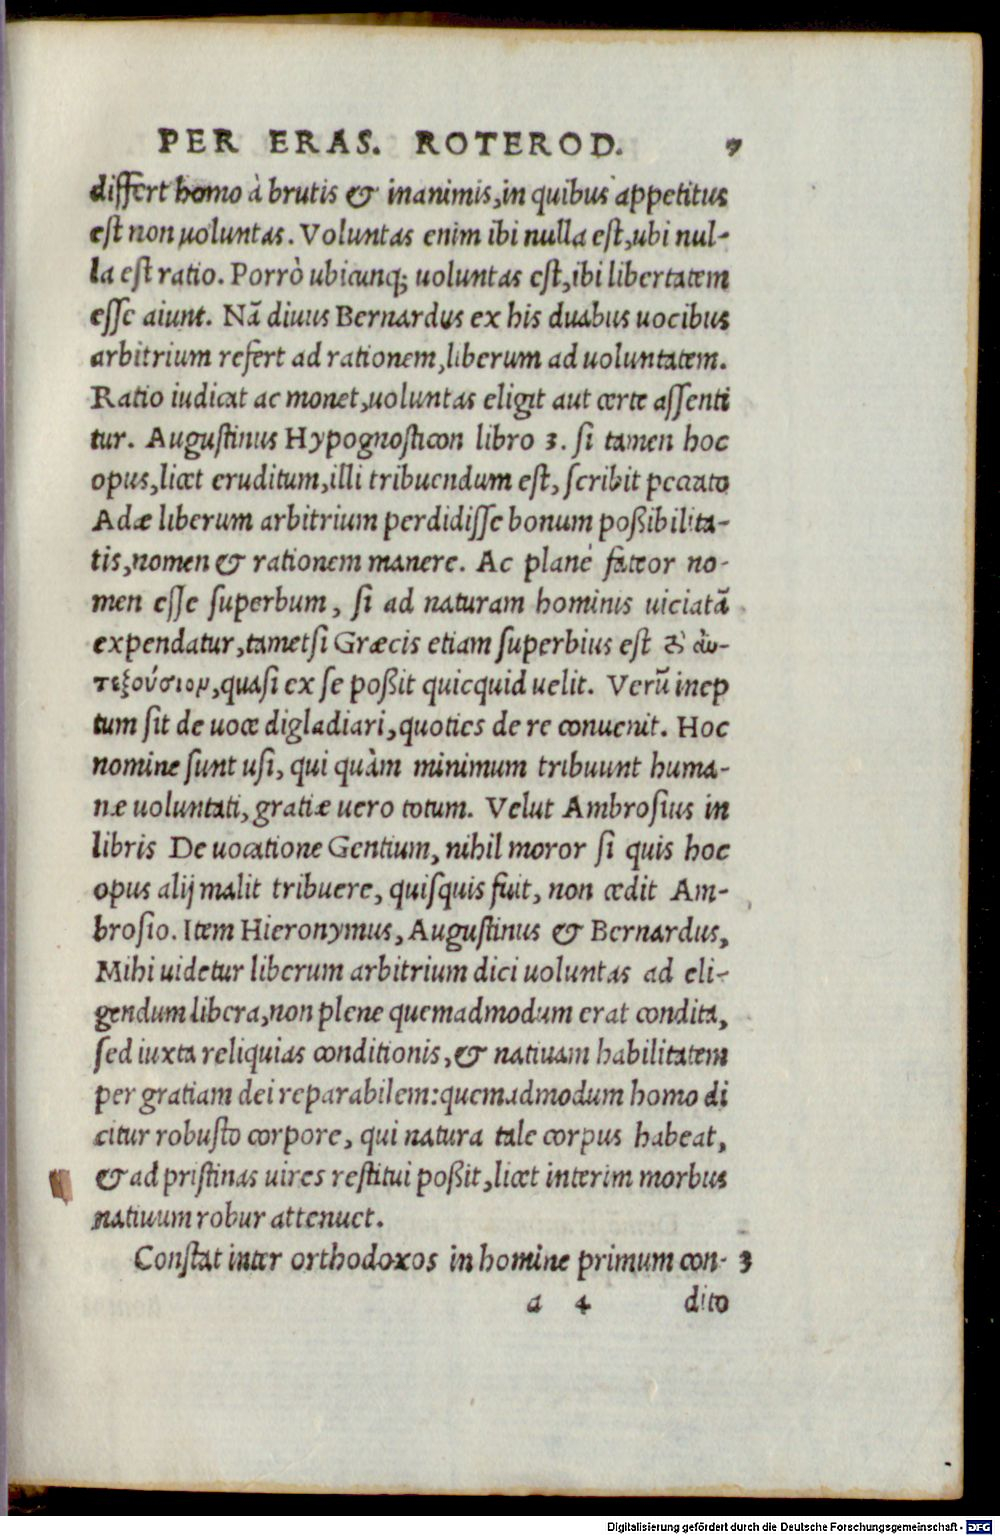 PER ERAS. ROTEROD. 7
differt homo à brutis & inanimis, in quibus appetitus
est non uoluntas. Voluntas enim ibi nulla est, ubi nul-
la est ratio. Porrò ubicunq; uoluntas est, ibi libertatem
esse aiunt. Nã diuus Bernardus ex his duabus uocibus
arbitrium refert ad rationem, liberum ad uoluntatem.
Ratio iudicat ac monet, uoluntas eligit aut certe assenti
tur. Augustinus Hypognosticon libro 3. si tamen hoc
opus, licet eruditum, illi tribuendum est, scribit peccato
Adæ liberum arbitrium perdidisse bonum poßibilita-
tis, nomen & rationem manere. Ac planè fateor no-
men esse superbum, si ad naturam hominis uiciatã
expendatur, tametsi Græcis etiam superbius est τὸ αὐ-
τεξούσιον, quasi ex se poßit quicquid uelit. Verũ inep
tum sit de uoce digladiari, quoties de re conuenit. Hoc
nomine sunt usi, qui quàm minimum tribuunt huma-
næ uoluntati, gratiæ uero totum. Velut Ambrosius in
libris De uocatione Gentium, nihil moror si quis hoc
opus alij malit tribuere, quisquis fuit, non cedit Am-
brosio. Item Hieronymus, Augustinus & Bernardus,
Mihi uidetur liberum arbitrium dici uoluntas ad eli-
gendum libera, non plene quemadmodum erat condita,
sed iuxta reliquias conditionis, & natiuam habilitatem
per gratiam dei reparabilem: quemadmodum homo di
citur robusto corpore, qui natura tale corpus habeat,
& ad pristinas uires restitui poßit, licet interim morbus
natiuum robur attenuet.
Constat inter orthodoxos in homine primum con- 3
a 4 dito
Digitalisierung gefördert durch die Deutsche Forschungsgemeinschaft - DFG